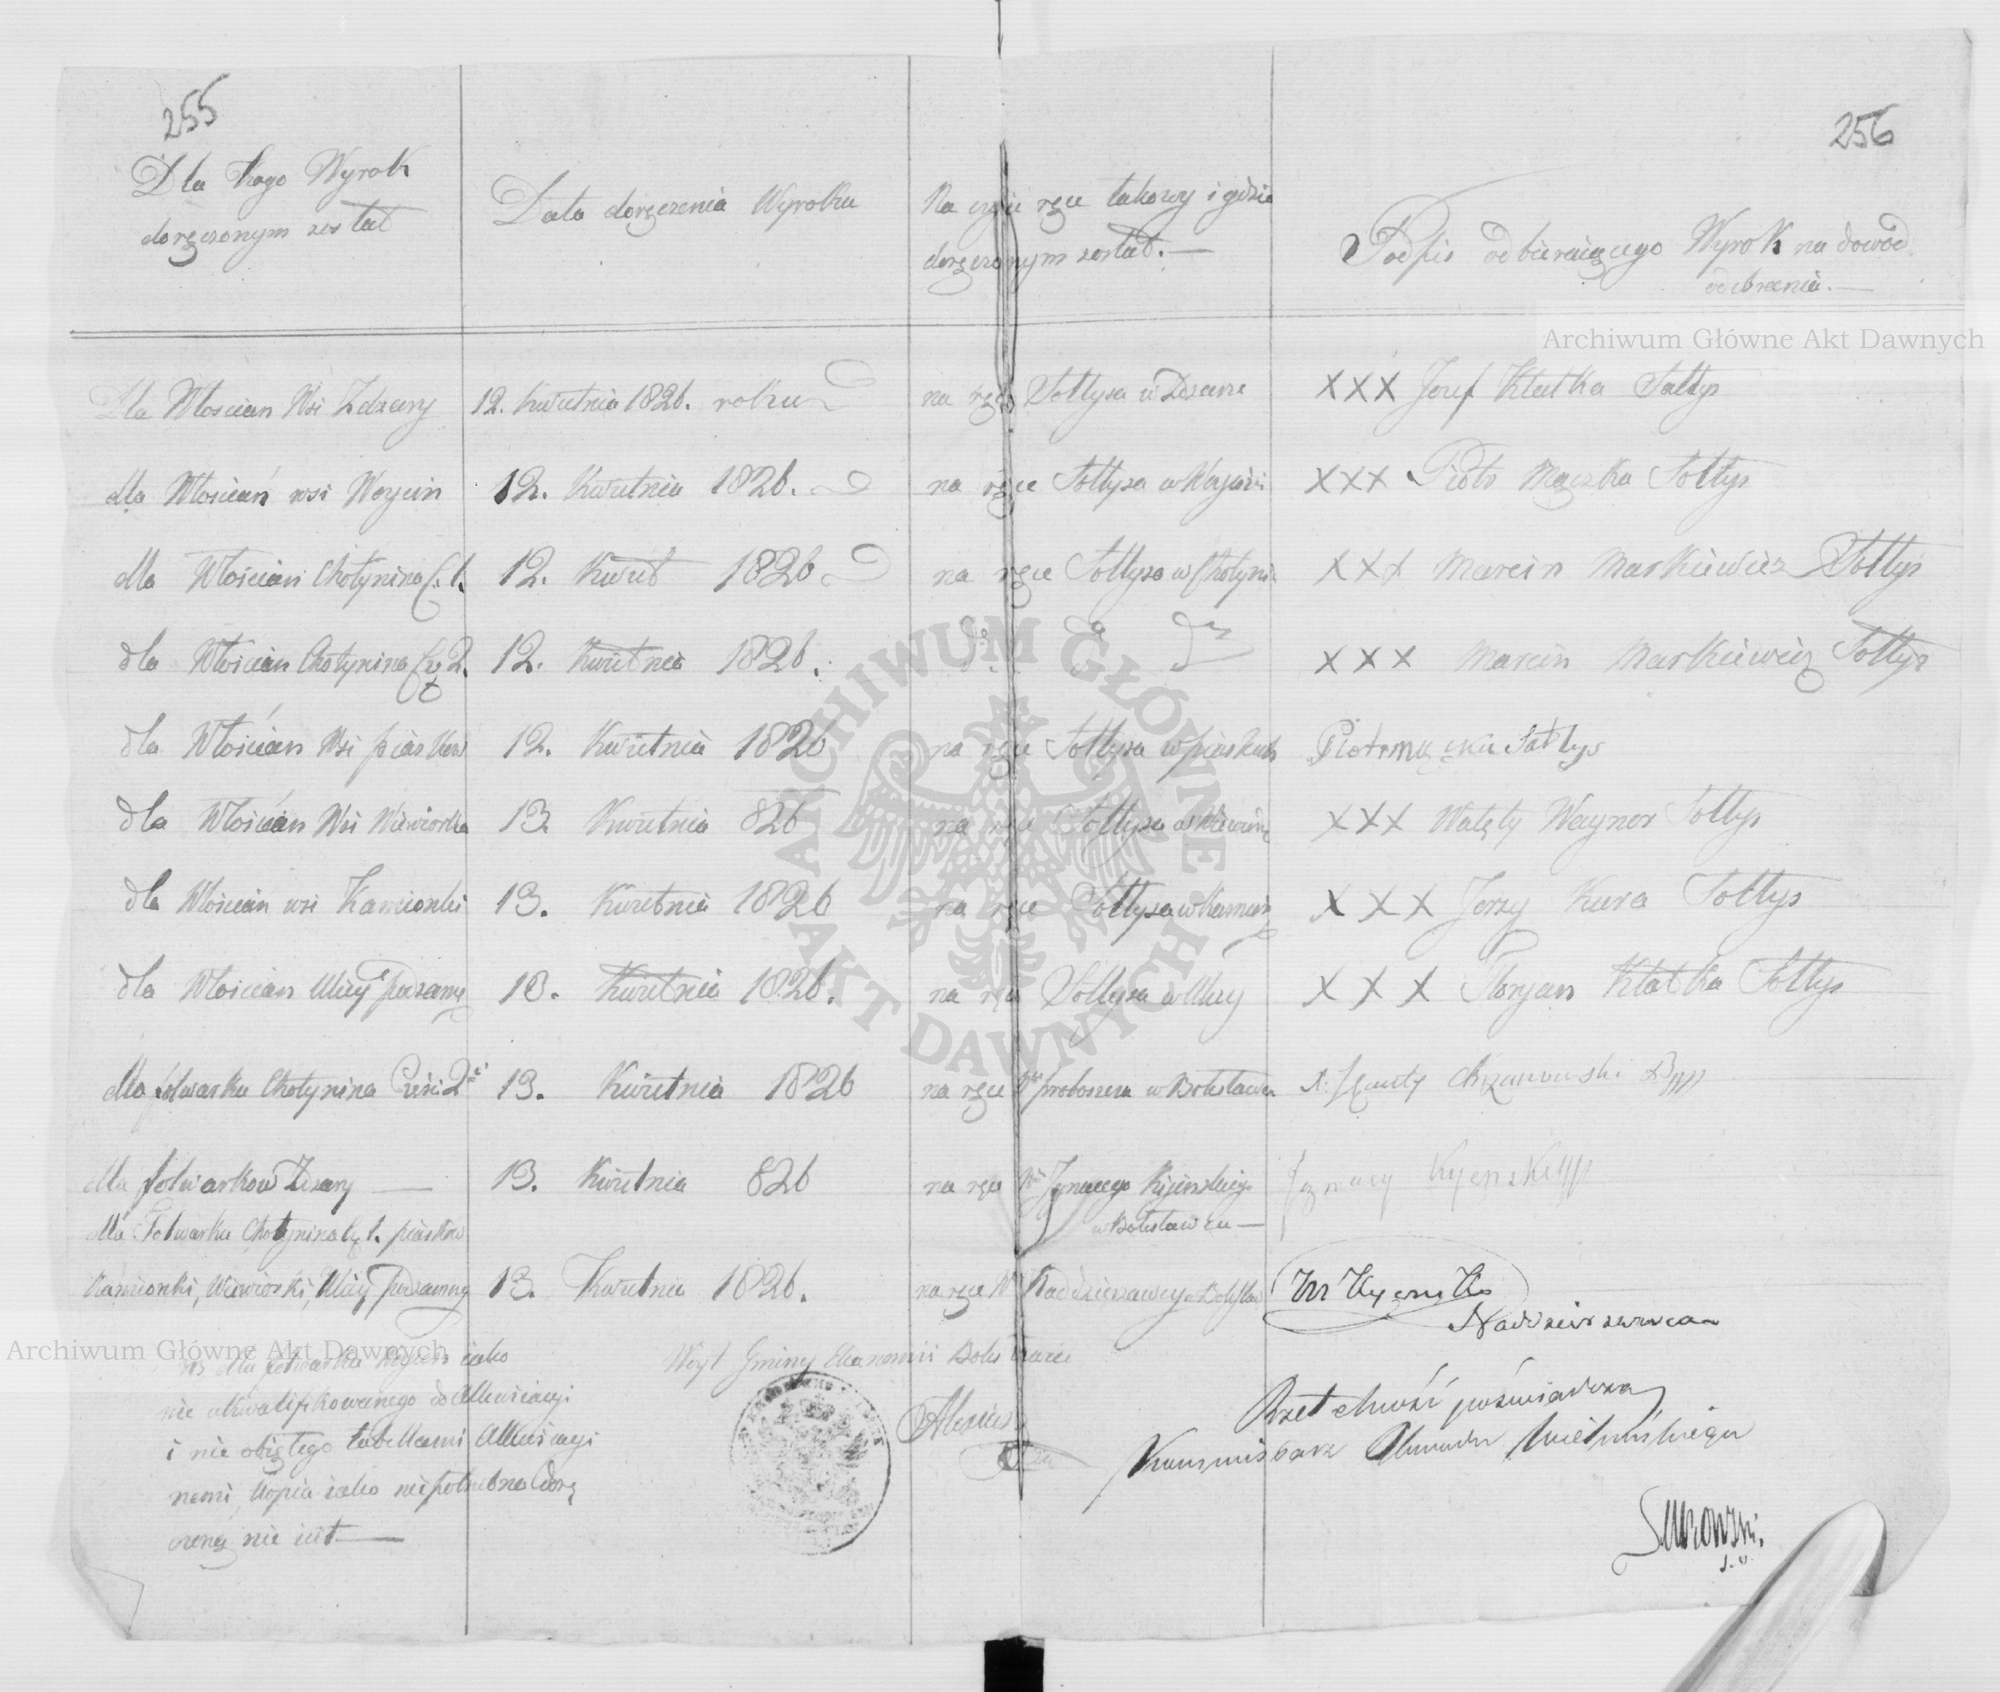 255
256
Dla kogo Wyrok
doręczonym został
Data doręczenia Wyroku
Na czyje ręce takowy i gdzie
doręczonym został. —
Podpis odbieraiącego Wyrok na dowód
odebrania. —
Archiwum Główne Akt Dawnych
Dla Włościan Wsi Zdzary 12. Kwietnia 1826. roku na ręce Sołtysa w Dzarze XXX Jozef Klatka Sałtys
dla Włościań wsi Woycin 12. Kwietnia 1826. na ręce Sołtysa w XXX Piotr Mączka Sołtys
dla Włościan Chotynina C. 1. 12. Kwiet 1826 na ręce Sołtysa w Chotyni XXX Marcin Markiewicz Sołtys
dla Włościan Chotynina Cz 2. 12. Kwietnia 1826. do do XXX Marcin Markiewicz Sołtys
dla Włościan Wsi piasków 12. Kwietnia 1826 na ręce Sołtysa w piaskach Sałtys
dla Włościan Wsi Wiewiorka 13. Kwietnia 826 na ręce Sołtysa w XXX Walęty Wayner Sołtys
dla Włościan wsi Kamionki 13. Kwietnia 1826 na ręce Sołtysa w Kamion XXX Jerzy Kura Sołtys
dla Włościan Ulicy Podzamcy 13. Kwietnia 1826. na ręce Sołtysa w Ulicy XXX Floryan Klatka Sołtys
dla folwarku Chotynina Części 2ei 13. Kwietnia 1826 na ręce proboszcza w Bolesławcu Chrzanowski
dla folwarkow Zdzary — 13. Kwietnia 826 na ręce Ignacego Kijeńskiego Ignacy Kyenski
w Bolesławcu —
dla Folwarku Chotynina Cz 1. piasków
Kamionki, Wiewiorki, Ulicy Podzamcy 13. Kwietnia 1826. na ręce Naddzierzawcy w Bolesław
Naddzierzawca
Archiwum Główne Akt Dawnych
dla folwarku Woycin iako
nie ukwalifikowanego do
i nie obiętego tabellami
nemi, kopia iako niepotrzebna dorę
czoną nie iest —
Woyt Gminy Ekonomii Bolesławiec
Rzetelność poświadcza
Kommissarz Obwodu Wieluńskiego
ARCHIWUM GŁÓWNE AKT DAWNYCH